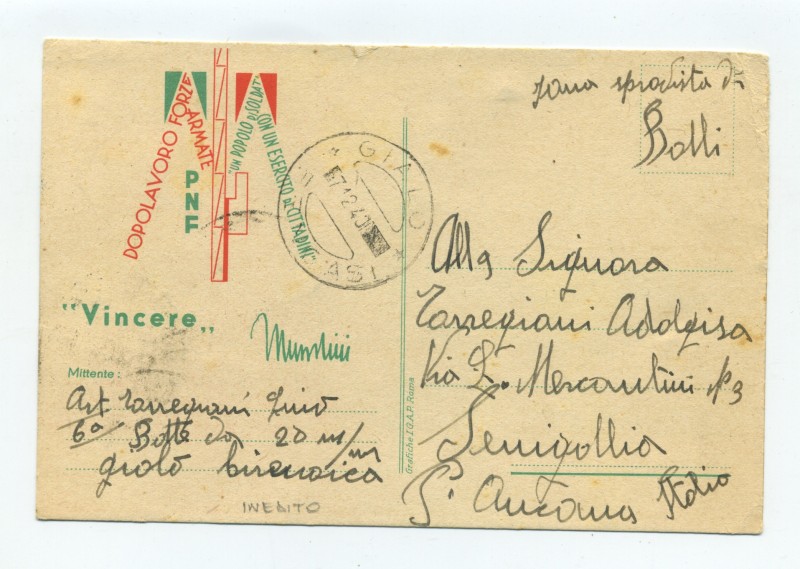 DOPOLAVORO FORZE
ARMATE
PNF
"UN POPOLO DI SOLDATI
CON UN ESERCITO DI CITTADINI"
GIALO
7.12.40
ASI
zona sprovista di
Bolli
"Vincere"
Mussolini
Mittente:
Art Tarregiani Lino
6a Batt da 20 m/m
gialo Cirenaica
INEDITO
Grafiche I.G.A.P. Roma
Alla Signora
Tarregiani Adalgisa
Via L. Mercantini No 3
Senigallia
P. Ancona Italia